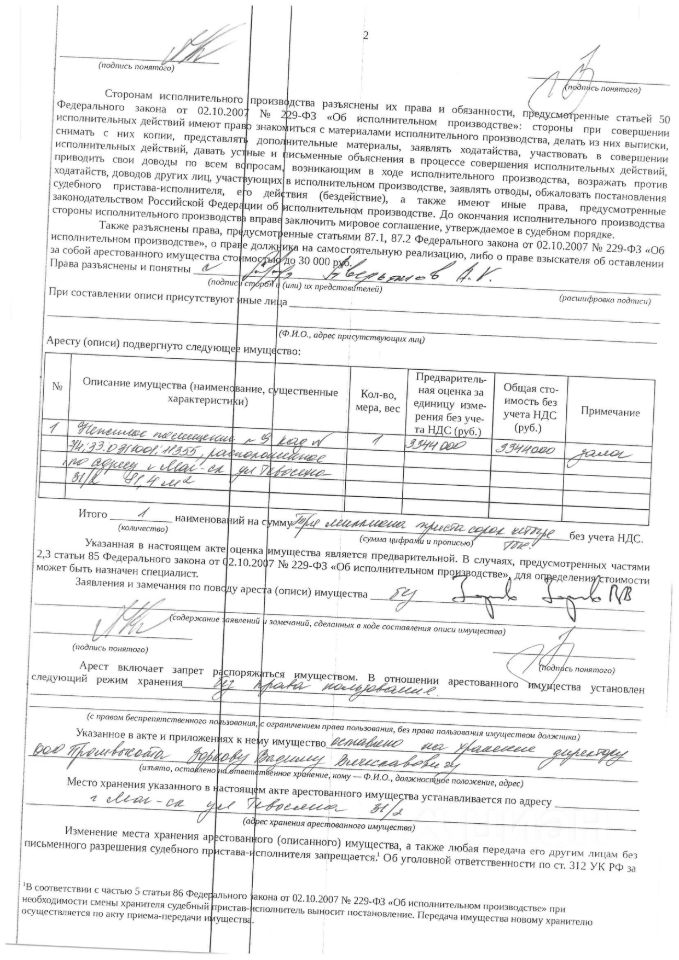 2
(подпись понятого)
(подпись понятого)
Сторонам исполнительного производства разъяснены их права и обязанности, предусмотренные статьей 50
Федерального закона от 02.10.2007 № 229-ФЗ «Об исполнительном производстве»: стороны при совершении
исполнительных действий имеют право знакомиться с материалами исполнительного производства, делать из них выписки,
снимать с них копии, представлять дополнительные материалы, заявлять ходатайства, участвовать в совершении
исполнительных действий, давать устные и письменные объяснения в процессе совершения исполнительных действий,
приводить свои доводы по всем вопросам, возникающим в ходе исполнительного производства, возражать против
ходатайств, доводов других лиц, участвующих в исполнительном производстве, заявлять отводы, обжаловать постановления
судебного пристава-исполнителя, его действия (бездействие), а также имеют иные права, предусмотренные
законодательством Российской Федерации об исполнительном производстве. До окончания исполнительного производства
стороны исполнительного производства вправе заключить мировое соглашение, утверждаемое в судебном порядке.
Также разъяснены права, предусмотренные статьями 87.1, 87.2 Федерального закона от 02.10.2007 № 229-ФЗ «Об
исполнительном производстве», о праве должника на самостоятельную реализацию, либо о праве взыскателя об оставлении
за собой арестованного имущества стоимостью до 30 000 руб.
Права разъяснены и понятны
(подписи сторон и (или) их представителей)
(расшифровка подписи)
При составлении описи присутствуют иные лица
(Ф.И.О., адрес присутствующих лиц)
Аресту (описи) подвергнуто следующее имущество:
№ Описание имущества (наименование, существенные характеристики) Кол-во, мера, вес Предваритель-ная оценка за единицу изме-рения без уче-та НДС (руб.) Общая сто-имость без учета НДС (руб.) Примечание
1 Нежилое помещение 1 3344000 3344000 залог
расположенное
по адресу г Маг-ск ул Тевосяна
31/2 81,4 м2
Итого 1 наименований на сумму Три миллиона триста сорок четыре без учета НДС.
(количество)
(сумма цифрами и прописью) тыс.
Указанная в настоящем акте оценка имущества является предварительной. В случаях, предусмотренных частями
2,3 статьи 85 Федерального закона от 02.10.2007 № 229-ФЗ «Об исполнительном производстве», для определения стоимости
может быть назначен специалист.
Заявления и замечания по поводу ареста (описи) имущества
(содержание заявлений и замечаний, сделанных в ходе составления описи имущества)
(подпись понятого)
(подпись понятого)
Арест включает запрет распоряжаться имуществом. В отношении арестованного имущества установлен
следующий режим хранения без права пользования
(с правом беспрепятственного пользования, с ограничением права пользования, без права пользования имуществом должника)
Указанное в акте и приложениях к нему имущество оставлено на хранение директору
ООО Промвысота Зоркову Вадиму Вячеславовичу
(изъято, оставлено на ответственное хранение, кому — Ф.И.О., должностное положение, адрес)
Место хранения указанного в настоящем акте арестованного имущества устанавливается по адресу
г Маг-ск ул Тевосяна 31/2
(адрес хранения арестованного имущества)
Изменение места хранения арестованного (описанного) имущества, а также любая передача его другим лицам без
письменного разрешения судебного пристава-исполнителя запрещается.¹ Об уголовной ответственности по ст. 312 УК РФ за
¹В соответствии с частью 5 статьи 86 Федерального закона от 02.10.2007 № 229-ФЗ «Об исполнительном производстве» при
необходимости смены хранителя судебный пристав-исполнитель выносит постановление. Передача имущества новому хранителю
осуществляется по акту приема-передачи имущества.